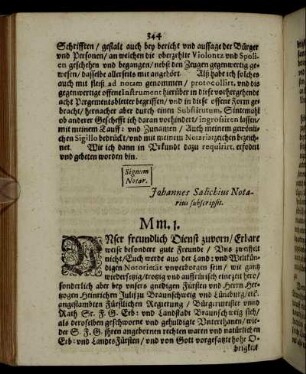 344
Schrifften / gestalt auch bey bericht vnd aussage der Bürger
vnd Personen / an welchen die oberzehlte Violentz vnd Spoli-
en geschehen vnd begangen / nebst den Zeugen gegenwertig ge-
wesen / dasselbe allerseits mit angehört. Alß hab ich solches
auch mit fleiß ad notam genommen / protocollirt, vnd diß
gegenwertige offene Instrument hierüber in diese vorhergehende
acht Pergementsbletter begriffen / vnd in diese offene Form ge-
bracht / hernacher aber durch einen Substitutum, Sintemahl
ob anderer Geschefft ich daran vorhindert / ingrossiren lassen /
mit meinem Tauff- vnd Zunamen / Auch meinem gewöhn-
lichen Sigillo bedruckt / vnd mit meinem Notariatzeichen bezeich-
net. Wie ich dann in Vrkundt dazu requirirt, erfodert
vnd gebeten worden bin.
Signum
Notar.
Johannes Salichius Nota-
rius subscripsit.
Mm. 1.
VNser freundlich Dienst zuvorn / Erbare
weise besondere gute Freunde / Vns zweifelt
nicht / Euch werde aus der Land: vnd Weltkün-
digen Notorietet vnverborgen sein / wie gantz
wiedersetzig / trotzig vnd auffrürisch eine zeit hero /
sonderlich aber bey vnsers gnedigen Fürsten vnd Herrn Her-
zogen Heinrichen Julij zu Braunschweig vnd Lüneburg / etc.
angestambten Fürstlichen Regierung / Bürgermeister vnd
Rath Sr. F. G. Erb- vnd Landstadt Braunschweig sich /
als derselben geschworene vnd gehuldigte Vnterthanen / wie-
der S. F. G. ihren angebornen rechten waren vnd natürlichen
Erb- vnd LandesFürsten / vnd von Gott vorgesatzte hohe O-
brigkeit